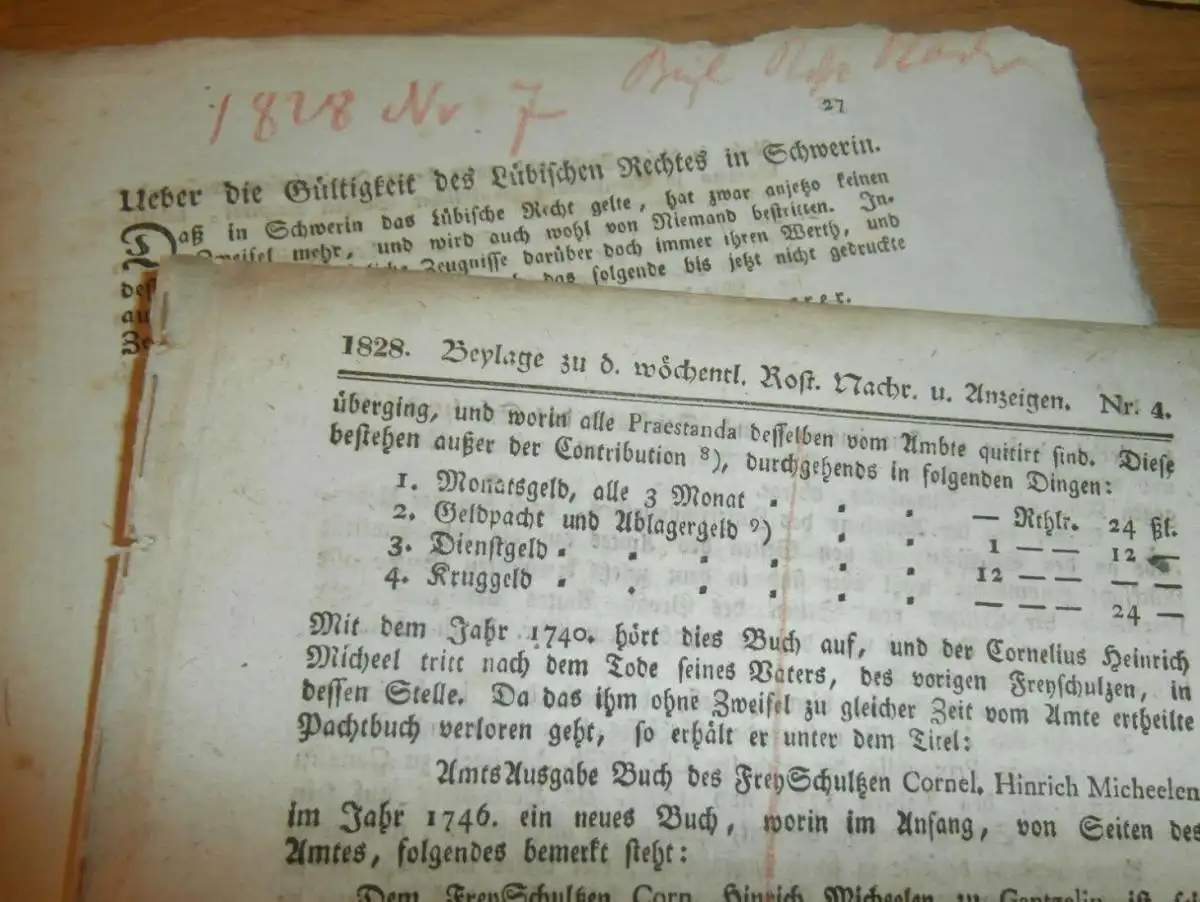 1828 Nr 7
27
Ueber die Gültigkeit des Lübischen Rechtes in Schwerin.
Daß in Schwerin das Lübische Recht gelte, hat zwar anjetzo keinen
Zweifel mehr, und wird auch wohl von Niemand bestritten. In-
des Zeugnisse darüber doch immer ihren Werth, und
au das folgende bis jetzt nicht gedruckte
Ze
1828. Beylage zu d. wöchentl. Rost. Nachr. u. Anzeigen. Nr. 4.
überging, und worin alle Praestanda desselben vom Ambte quitirt sind. Diese
bestehen außer der Contribution 8), durchgehends in folgenden Dingen:
1. Monatsgeld, alle 3 Monat . . . — Rthlr. 24 ßl.
2. Geldpacht und Ablagergeld 9) . . 1 — — 12 —
3. Dienstgeld . . . . . . 12 — — — —
4. Kruggeld . . . . . . — — — 24 —
Mit dem Jahr 1740. hört dies Buch auf, und der Cornelius Heinrich
Micheel tritt nach dem Tode seines Vaters, des vorigen Freyschulzen, in
dessen Stelle. Da das ihm ohne Zweifel zu gleicher Zeit vom Amte ertheilte
Pachtbuch verloren geht, so erhält er unter dem Titel:
AmtsAusgabe Buch des FreySchultzen Cornel. Hinrich Micheelen
im Jahr 1746. ein neues Buch, worin im Anfang, von Seiten des
Amtes, folgendes bemerkt steht:
Dem FreySchultzen Corn. Hinrich Micheelen zu Gantzelin ist